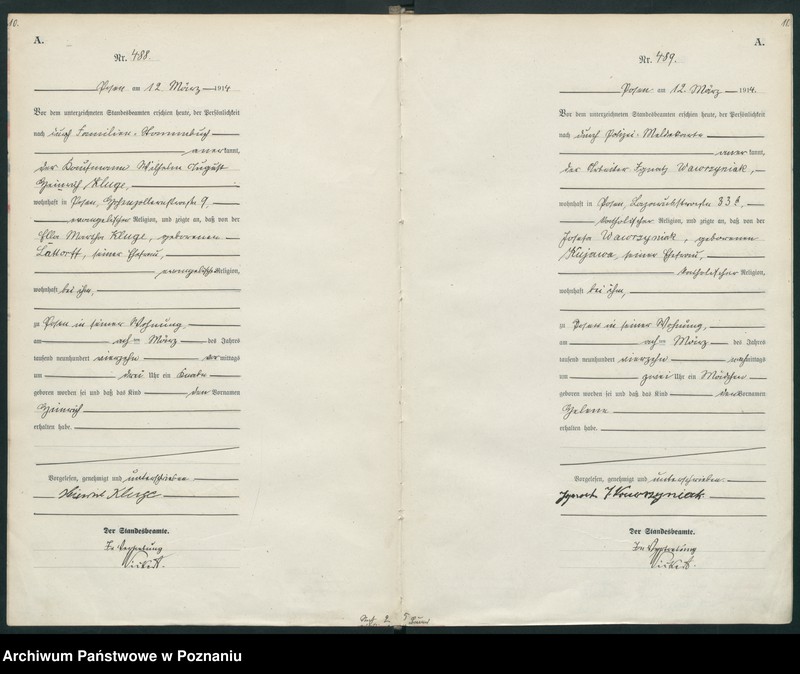 10.
A.
Nr. 488.
Posen am 12 März 1914
Vor dem unterzeichneten Standesbeamten erschien heute, der Persönlichkeit
nach durch Familien-Stammbuch
anerkannt,
der Kaufmann Wilhelm August
Heinrich Kluge,
wohnhaft in Posen, Hohenzollernstrasse 9,
evangelischer Religion, und zeigte an, daß von der
Ella Martha Kluge, geborenen
Lattorff, seiner Ehefrau,
evangelischer Religion,
wohnhaft bei ihm,
zu Posen in seiner Wohnung,
am acht ten März des Jahres
tausend neunhundert vierzehn vormittags
um drei Uhr ein Knabe
geboren worden sei und daß das Kind den Vornamen
Heinrich
erhalten habe.
Vorgelesen, genehmigt und unterschrieben
Kluge
Der Standesbeamte.
In Vertretung
11.
A.
Nr. 489.
Posen am 12. März 1914.
Vor dem unterzeichneten Standesbeamten erschien heute, der Persönlichkeit
nach durch Polizei-Meldekarte
anerkannt,
der Arbeiter Ignatz Wawrzyniak,
wohnhaft in Posen,
katholischer Religion, und zeigte an, daß von der
Josefa Wawrzyniak, geborenen
Kujawa, seiner Ehefrau,
katholischer Religion,
wohnhaft bei ihm,
zu Posen in seiner Wohnung,
am acht ten März des Jahres
tausend neunhundert vierzehn nachmittags
um zwei Uhr ein Mädchen
geboren worden sei und daß das Kind den Vornamen
Helene
erhalten habe.
Vorgelesen, genehmigt und unterschrieben.
Wawrzyniak
Der Standesbeamte.
In Vertretung
Archiwum Państwowe w Poznaniu